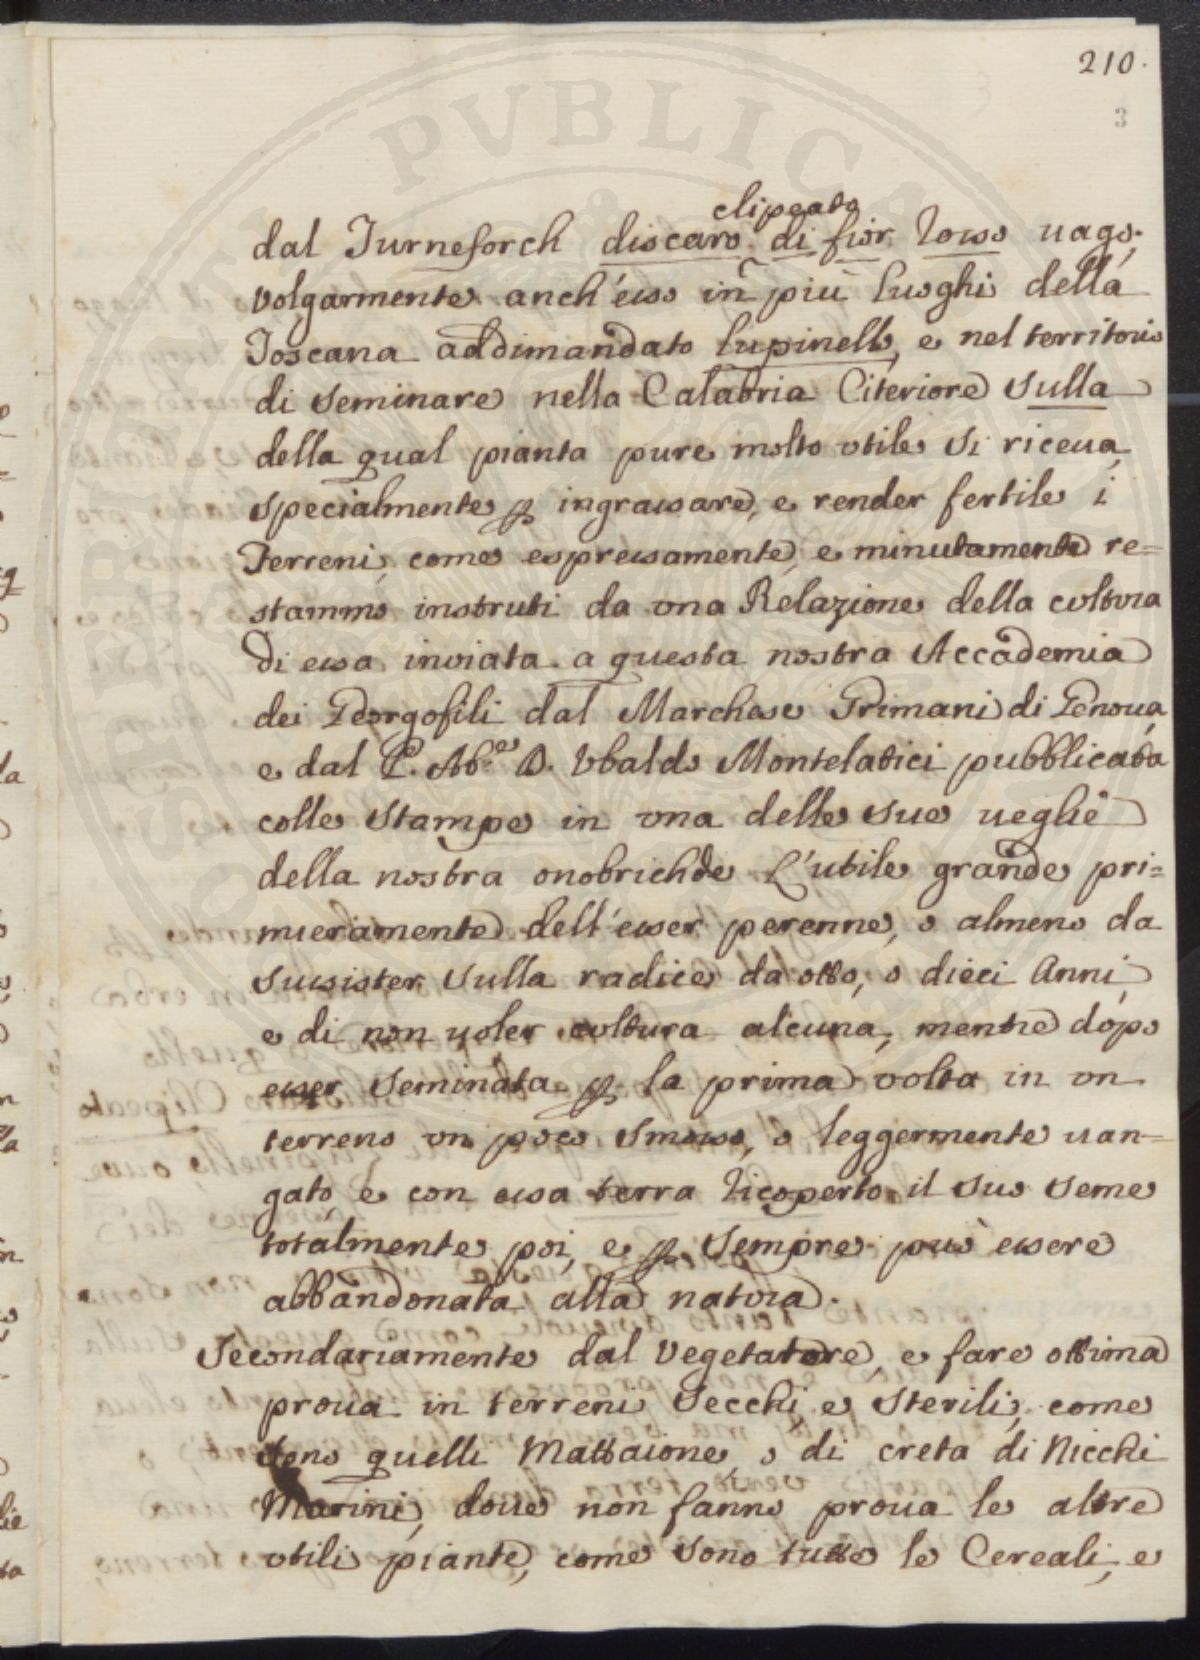 210.
3
clipeato
dal Turneforch discaro di fior rosso vago,
volgarmente anch'esso in più luoghi della
Toscana addimandato lupinello, e nel territorio
di Seminare nella Calabria Citeriore Sulla
della qual pianta pure molto utile si riceva,
specialmente p ingrassare, e render fertile i
Terreni, come espressamente, e minutamente re=
stammo instruti da una Relazione della coltura
di essa inviata a questa nostra Accademia
dei Georgofili dal Marchese Grimani di Genova,
e dal P. Ab.e D. Ubaldo Montelatici pubblicata
colle Stampe in una delle sue veglie
della nostra onobrichde L'utile grande pri=
mieramente dell'esser perenne, o almeno da
sussister sulla radice da otto, o dieci Anni,
e di non voler coltura alcuna, mentre dopo
esser seminata p la prima volta in un
terreno un poco smosso, o leggermente van=
gato, e con essa terra ricoperto il suo seme
totalmente poi, e p sempre può essere
abbandonata alla natura.
Secondariamente dal vegetatore, e fare ottima
prova in terreni secchi e sterili, come
sono quelli Mattaione, o di creta di Nicchi
Marini, dove non fanno prova le altre
utili piante, come sono tutte le Cereali, e